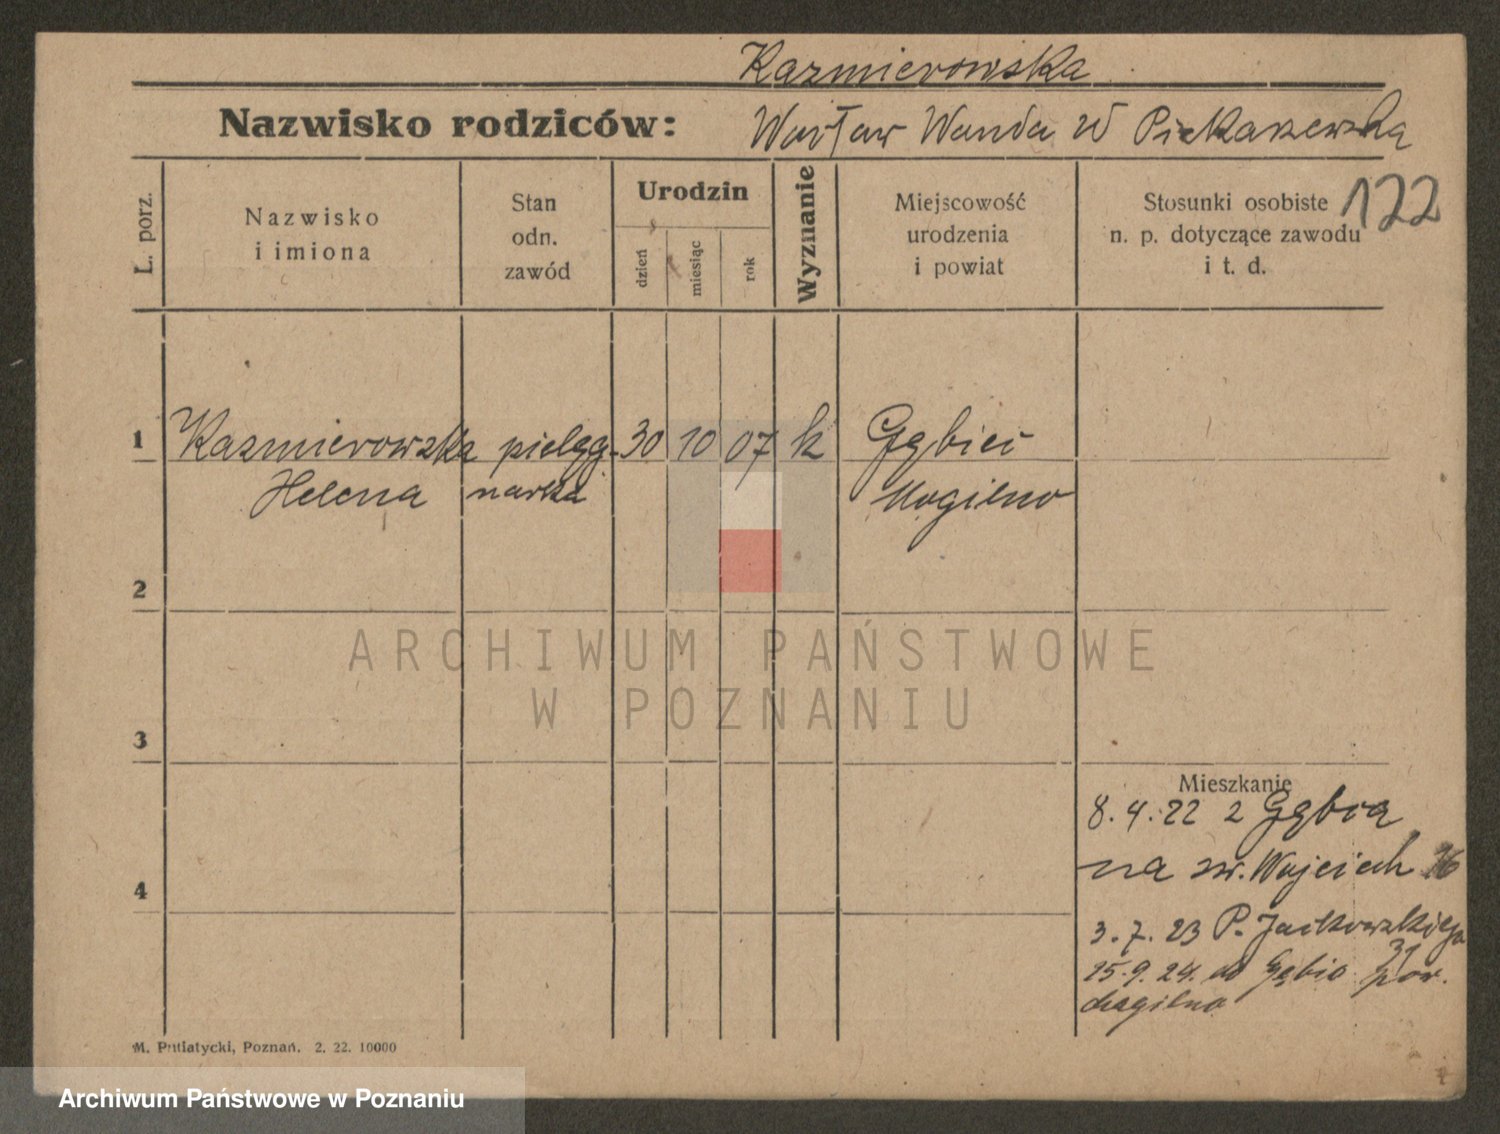 Kazmierowska
Nazwisko rodziców: Wacław Wanda W Piekarzewska
L. porz.
Nazwisko
i imiona
Stan
odn.
zawód
Urodzin
dzień
miesiąc
rok
Wyznanie
Miejscowość
urodzenia
i powiat
Stosunki osobiste
n. p. dotyczące zawodu
i t. d.
122
1 Kazmierowska pielęg- 30 10 07 k Gębice
Helena narka Mogilno
2
3
4
Mieszkanie
8.4.22 z Gębic
na św. Wojciech
3.7.23 P. Jackowskiego
31
15.9.24. do Gębic pow.
Mogilno
M. Putiatycki, Poznań. 2. 22. 10000
ARCHIWUM PAŃSTWOWE
W POZNANIU
Archiwum Państwowe w Poznaniu